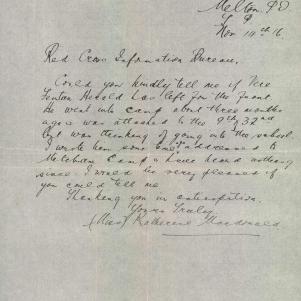 Melton P.O.
Nov 14th 16
Red Cross Information Bureau,
Could you kindly tell me if
has left for the Front.
He went into camp about three months
ago & was attached to the 9th, 32nd
but was thinking of going into the school.
I wrote him some time addressed to
Camp & have heard nothing
since. I would be very pleased if
you could tell me.
Thanking you in anticipation.
Yours Truly
(Miss) Katherine Macdonald